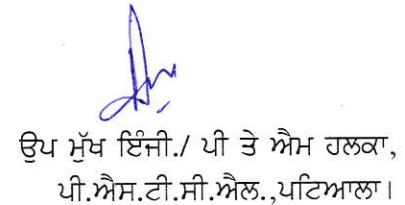 ਉਪ ਮੁੱਖ ਇੰਜੀ./ ਪੀ ਤੇ ਐਮ ਹਲਕਾ,
ਪੀ.ਐਸ.ਟੀ.ਸੀ.ਐਲ.,ਪਟਿਆਲਾ।